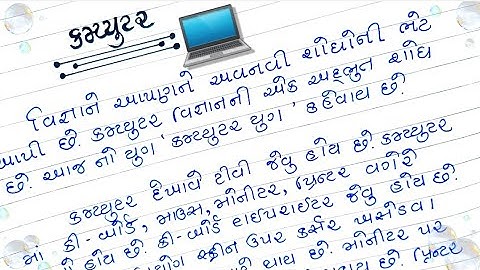 કમ્પ્યુટર
વિજ્ઞાને આપણને અવનવી શોધોની ભેટ
આપી છે. કમ્પ્યુટર વિજ્ઞાનની એક અદ્ભુત શોધ
છે. આજ નો યુગ 'કમ્પ્યુટર યુગ' કહેવાય છે.
કમ્પ્યુટર દેખાવે ટીવી જેવુ હોય છે. કમ્પ્યુટર
માં કી-બોર્ડ, માઉસ, મોનીટર, પ્રિન્ટર વગેરે
હોય છે. કી-બોર્ડ ટાઇપરાઇટર જેવુ હોય છે.
સ્ક્રીન ઉપર કર્સર ખસેડવા
થાય છે. મોનીટર પર
છે. પ્રિન્ટર